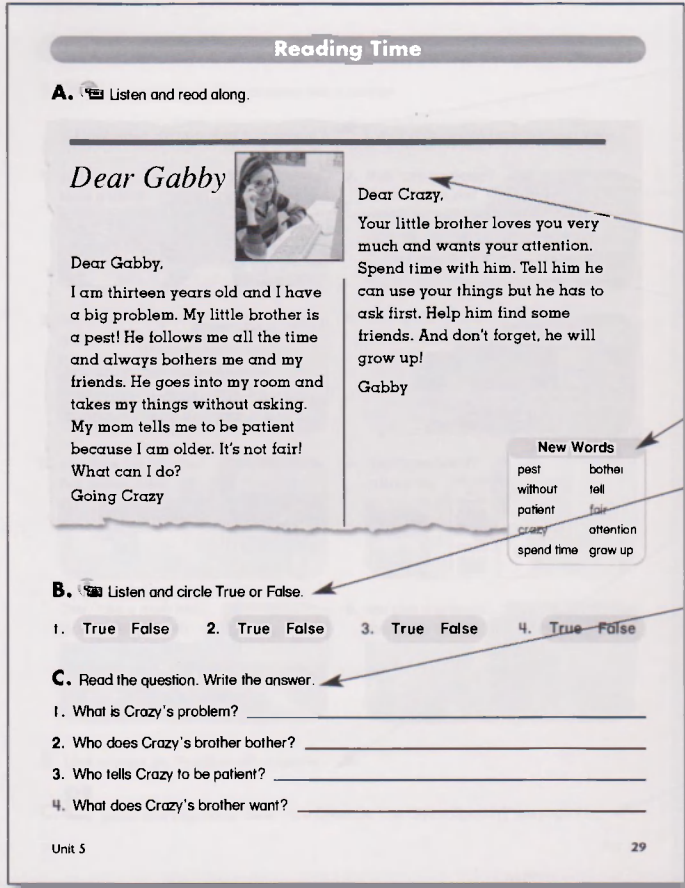 Reading Time
A. Listen and read along.
Dear Gabby
Dear Gabby,
I am thirteen years old and I have
a big problem. My little brother is
a pest! He follows me all the time
and always bothers me and my
friends. He goes into my room and
takes my things without asking.
My mom tells me to be patient
because I am older. It's not fair!
What can I do?
Going Crazy
Dear Crazy,
Your little brother loves you very
much and wants your attention.
Spend time with him. Tell him he
can use your things but he has to
ask first. Help him find some
friends. And don't forget, he will
grow up!
Gabby
New Words
pest bother
without tell
patient fair
crazy attention
spend time grow up
B. Listen and circle True or False.
1. True False 2. True False 3. True False 4. True False
C. Read the question. Write the answer.
1. What is Crazy's problem?
2. Who does Crazy's brother bother?
3. Who tells Crazy to be patient?
4. What does Crazy's brother want?
Unit 5 29